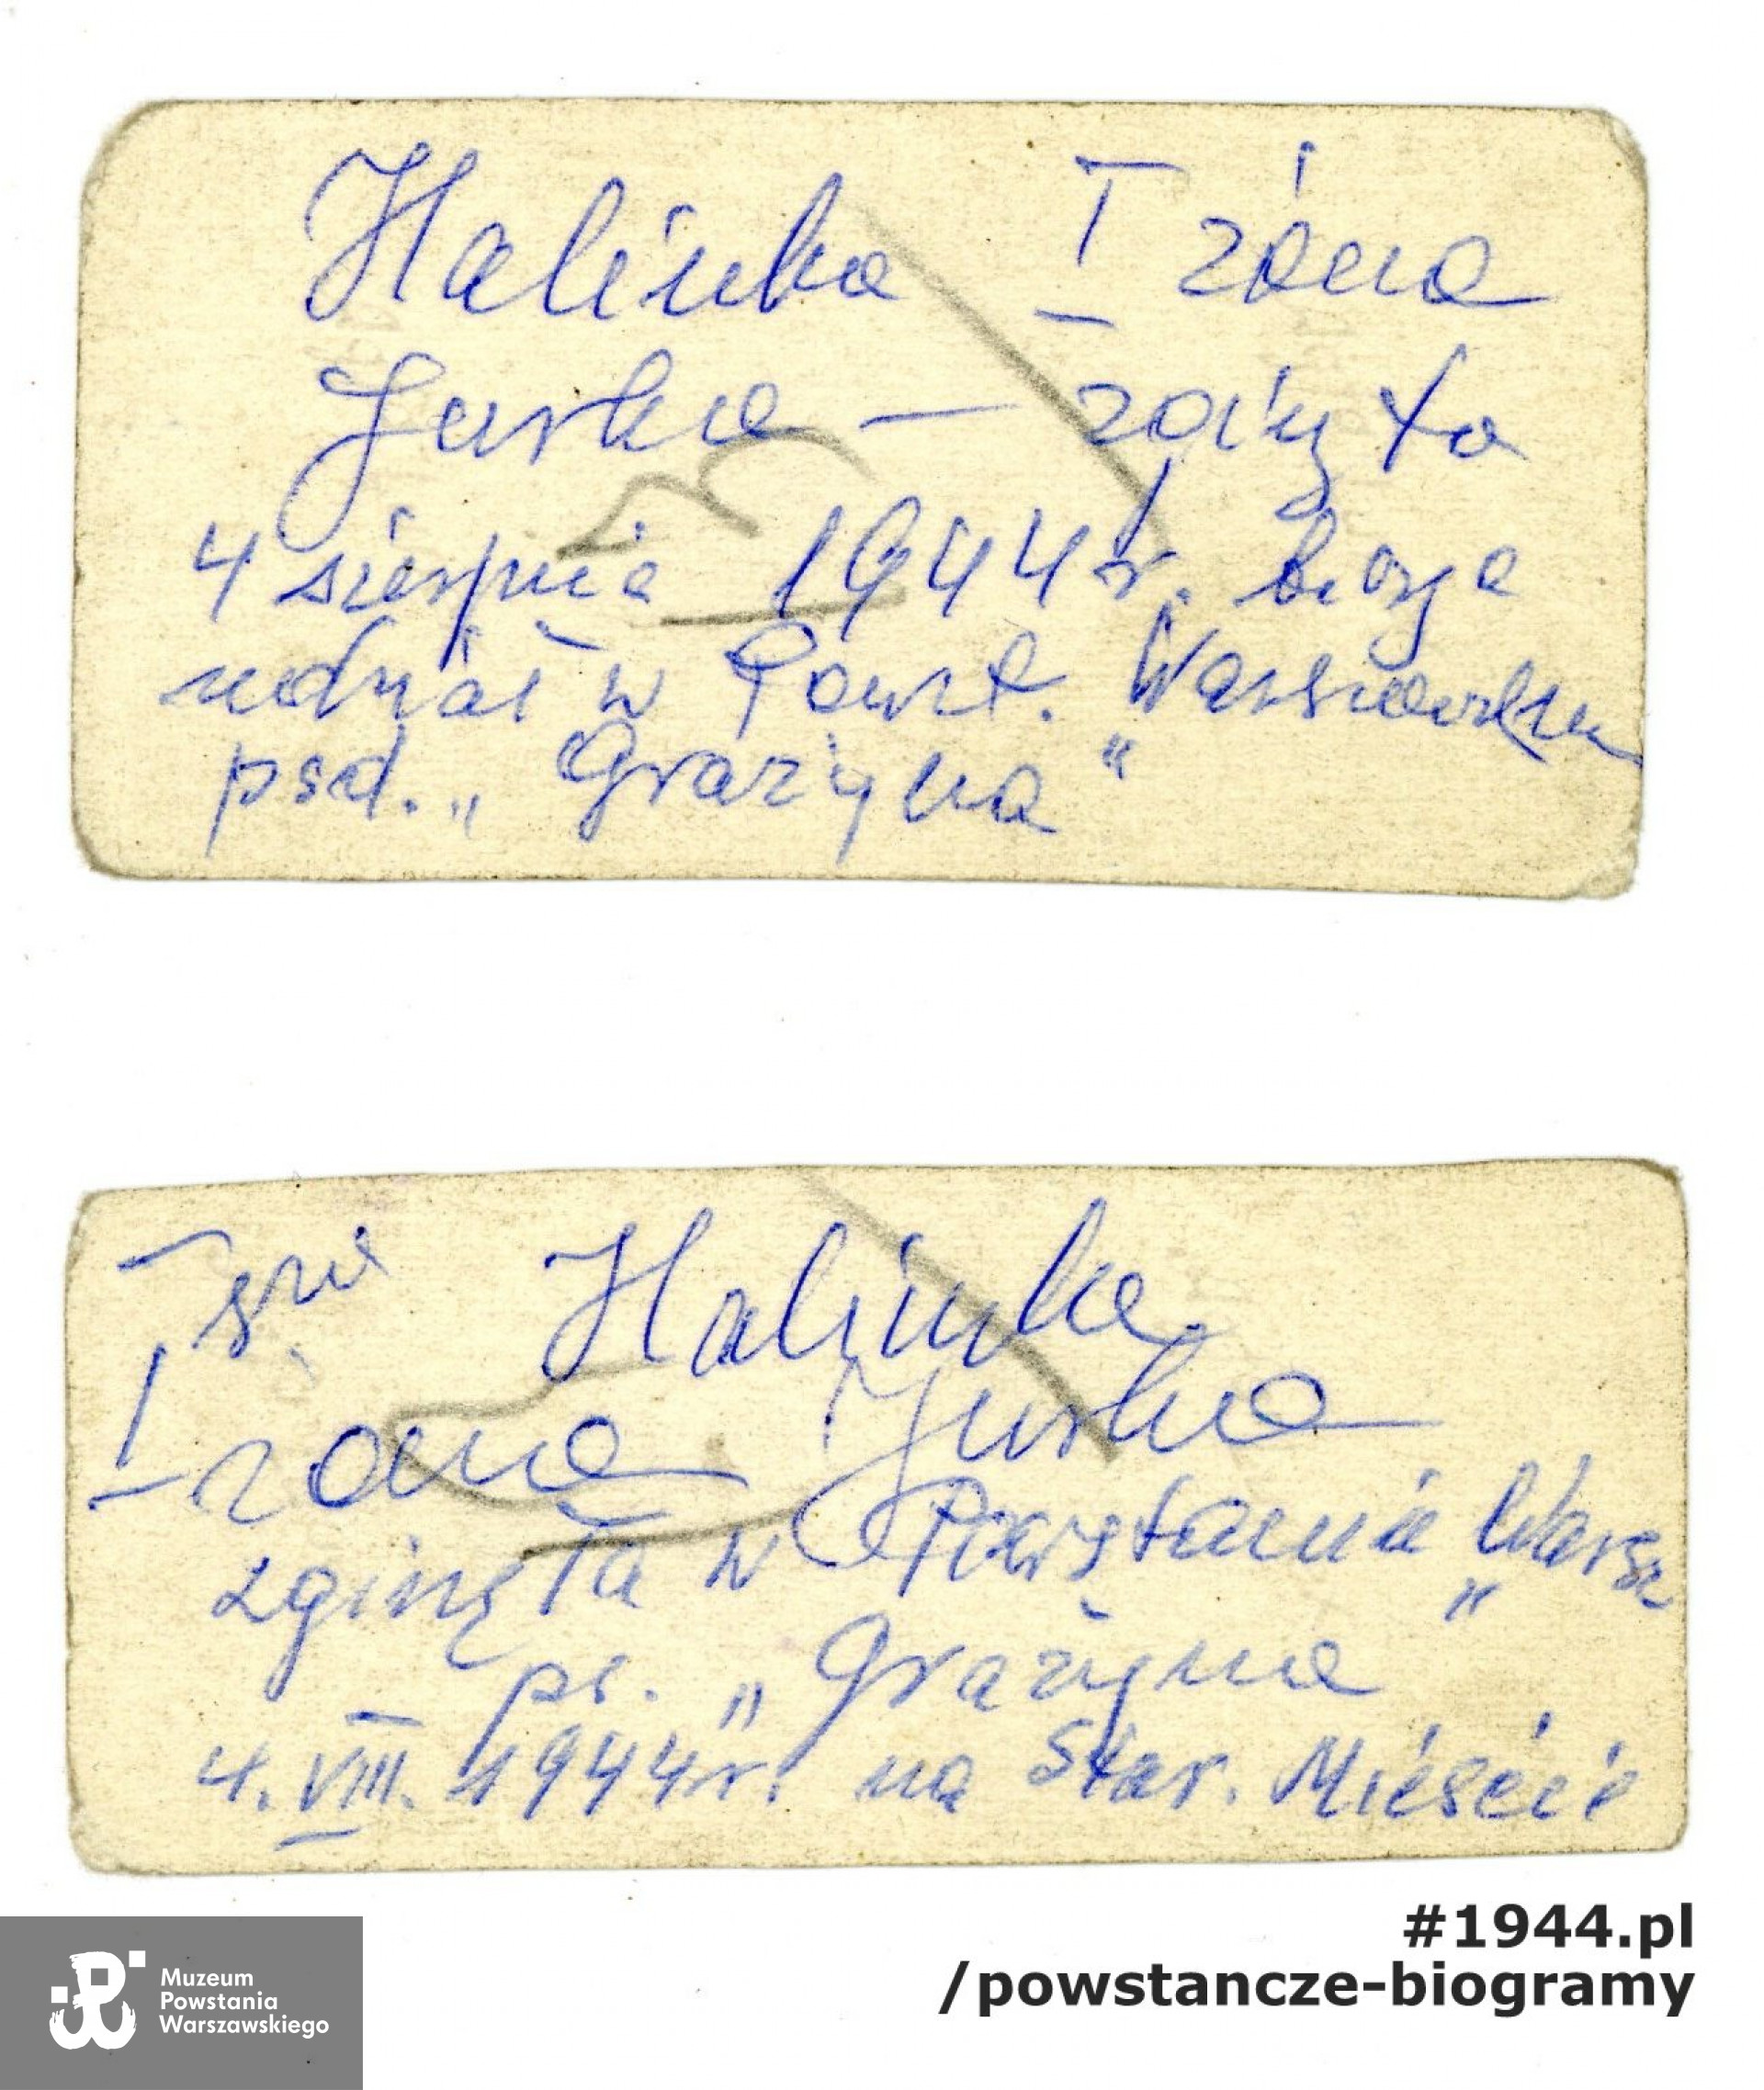 Halinka I żona
Jurka — zabyta
4 sierpnia 1944 r. biorąc
udział w Powst. Warszawskim
psd. „Grażyna"
I-sza Halinka
żona Jurka
zginęła w Powstaniu Warsz
ps. „Grażyna"
4. VIII. 1944 r. na Star. Mieście
#1944.pl
/powstancze-biogramy
Muzeum
Powstania
Warszawskiego